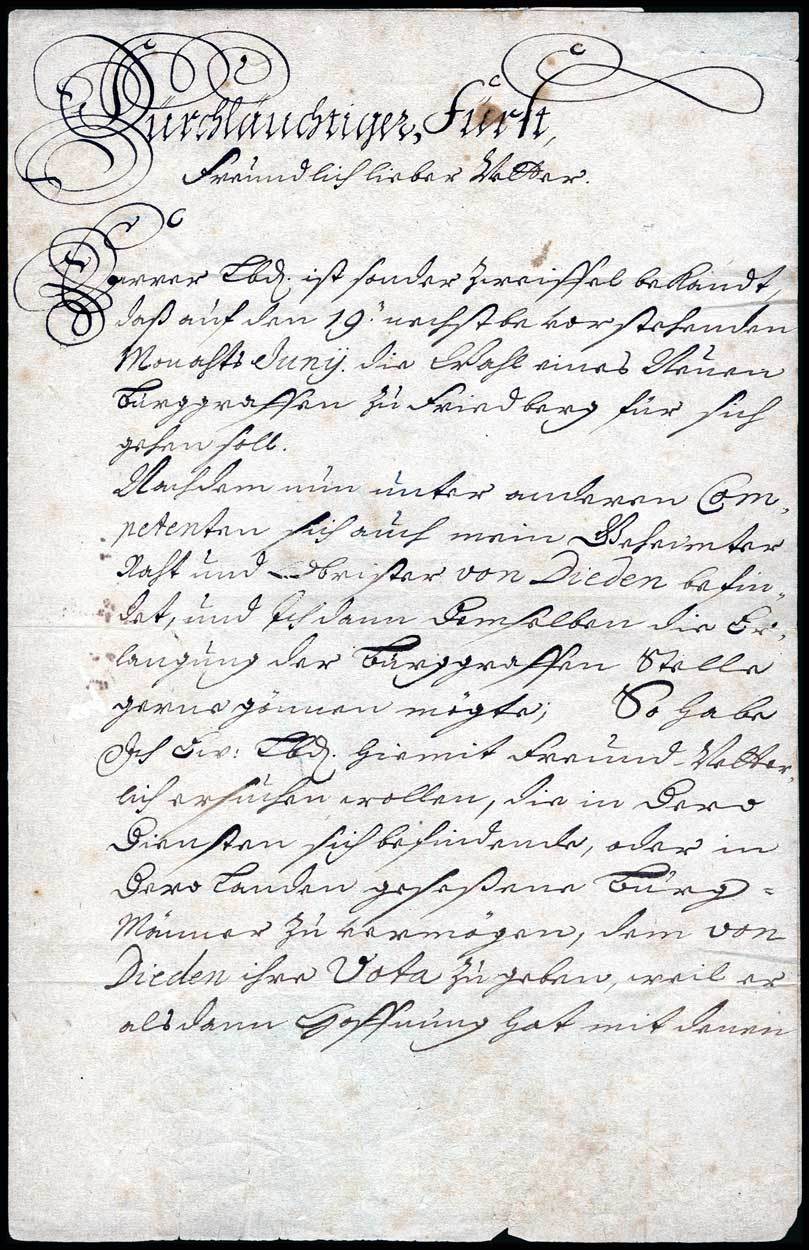 Dürchläuchtiger, Fürst,
Freündlich lieber Vetter.
Eurer Lbd. ist sonder Zweiffel bekandt,
daß auf den 19.ᵗ nechstbevorstehenden
Monahts Junÿ. die Wahl eines Neüen
Bürggraffen zu Friedberg für sich
gehen soll.
Nachdem nün unter anderen Com-
petenten sich auch mein Geheimter
Raht und Obrister von Dieden befin-
det, und Ich dann Demselben die Er-
langung der Bürggraffen Stelle
gerne gönnen mögte; So habe
Ich Ew: Lbd. hiemit Freund-Vetter-
lich ersuchen wollen, die in Dero
Diensten sich befindende, oder in
Dero Landen geseßene Bürg-
Männer zu vermögen, dem von
Dieden ihre Vota zu geben, weil er
alsdann Hoffnung hat mit denen